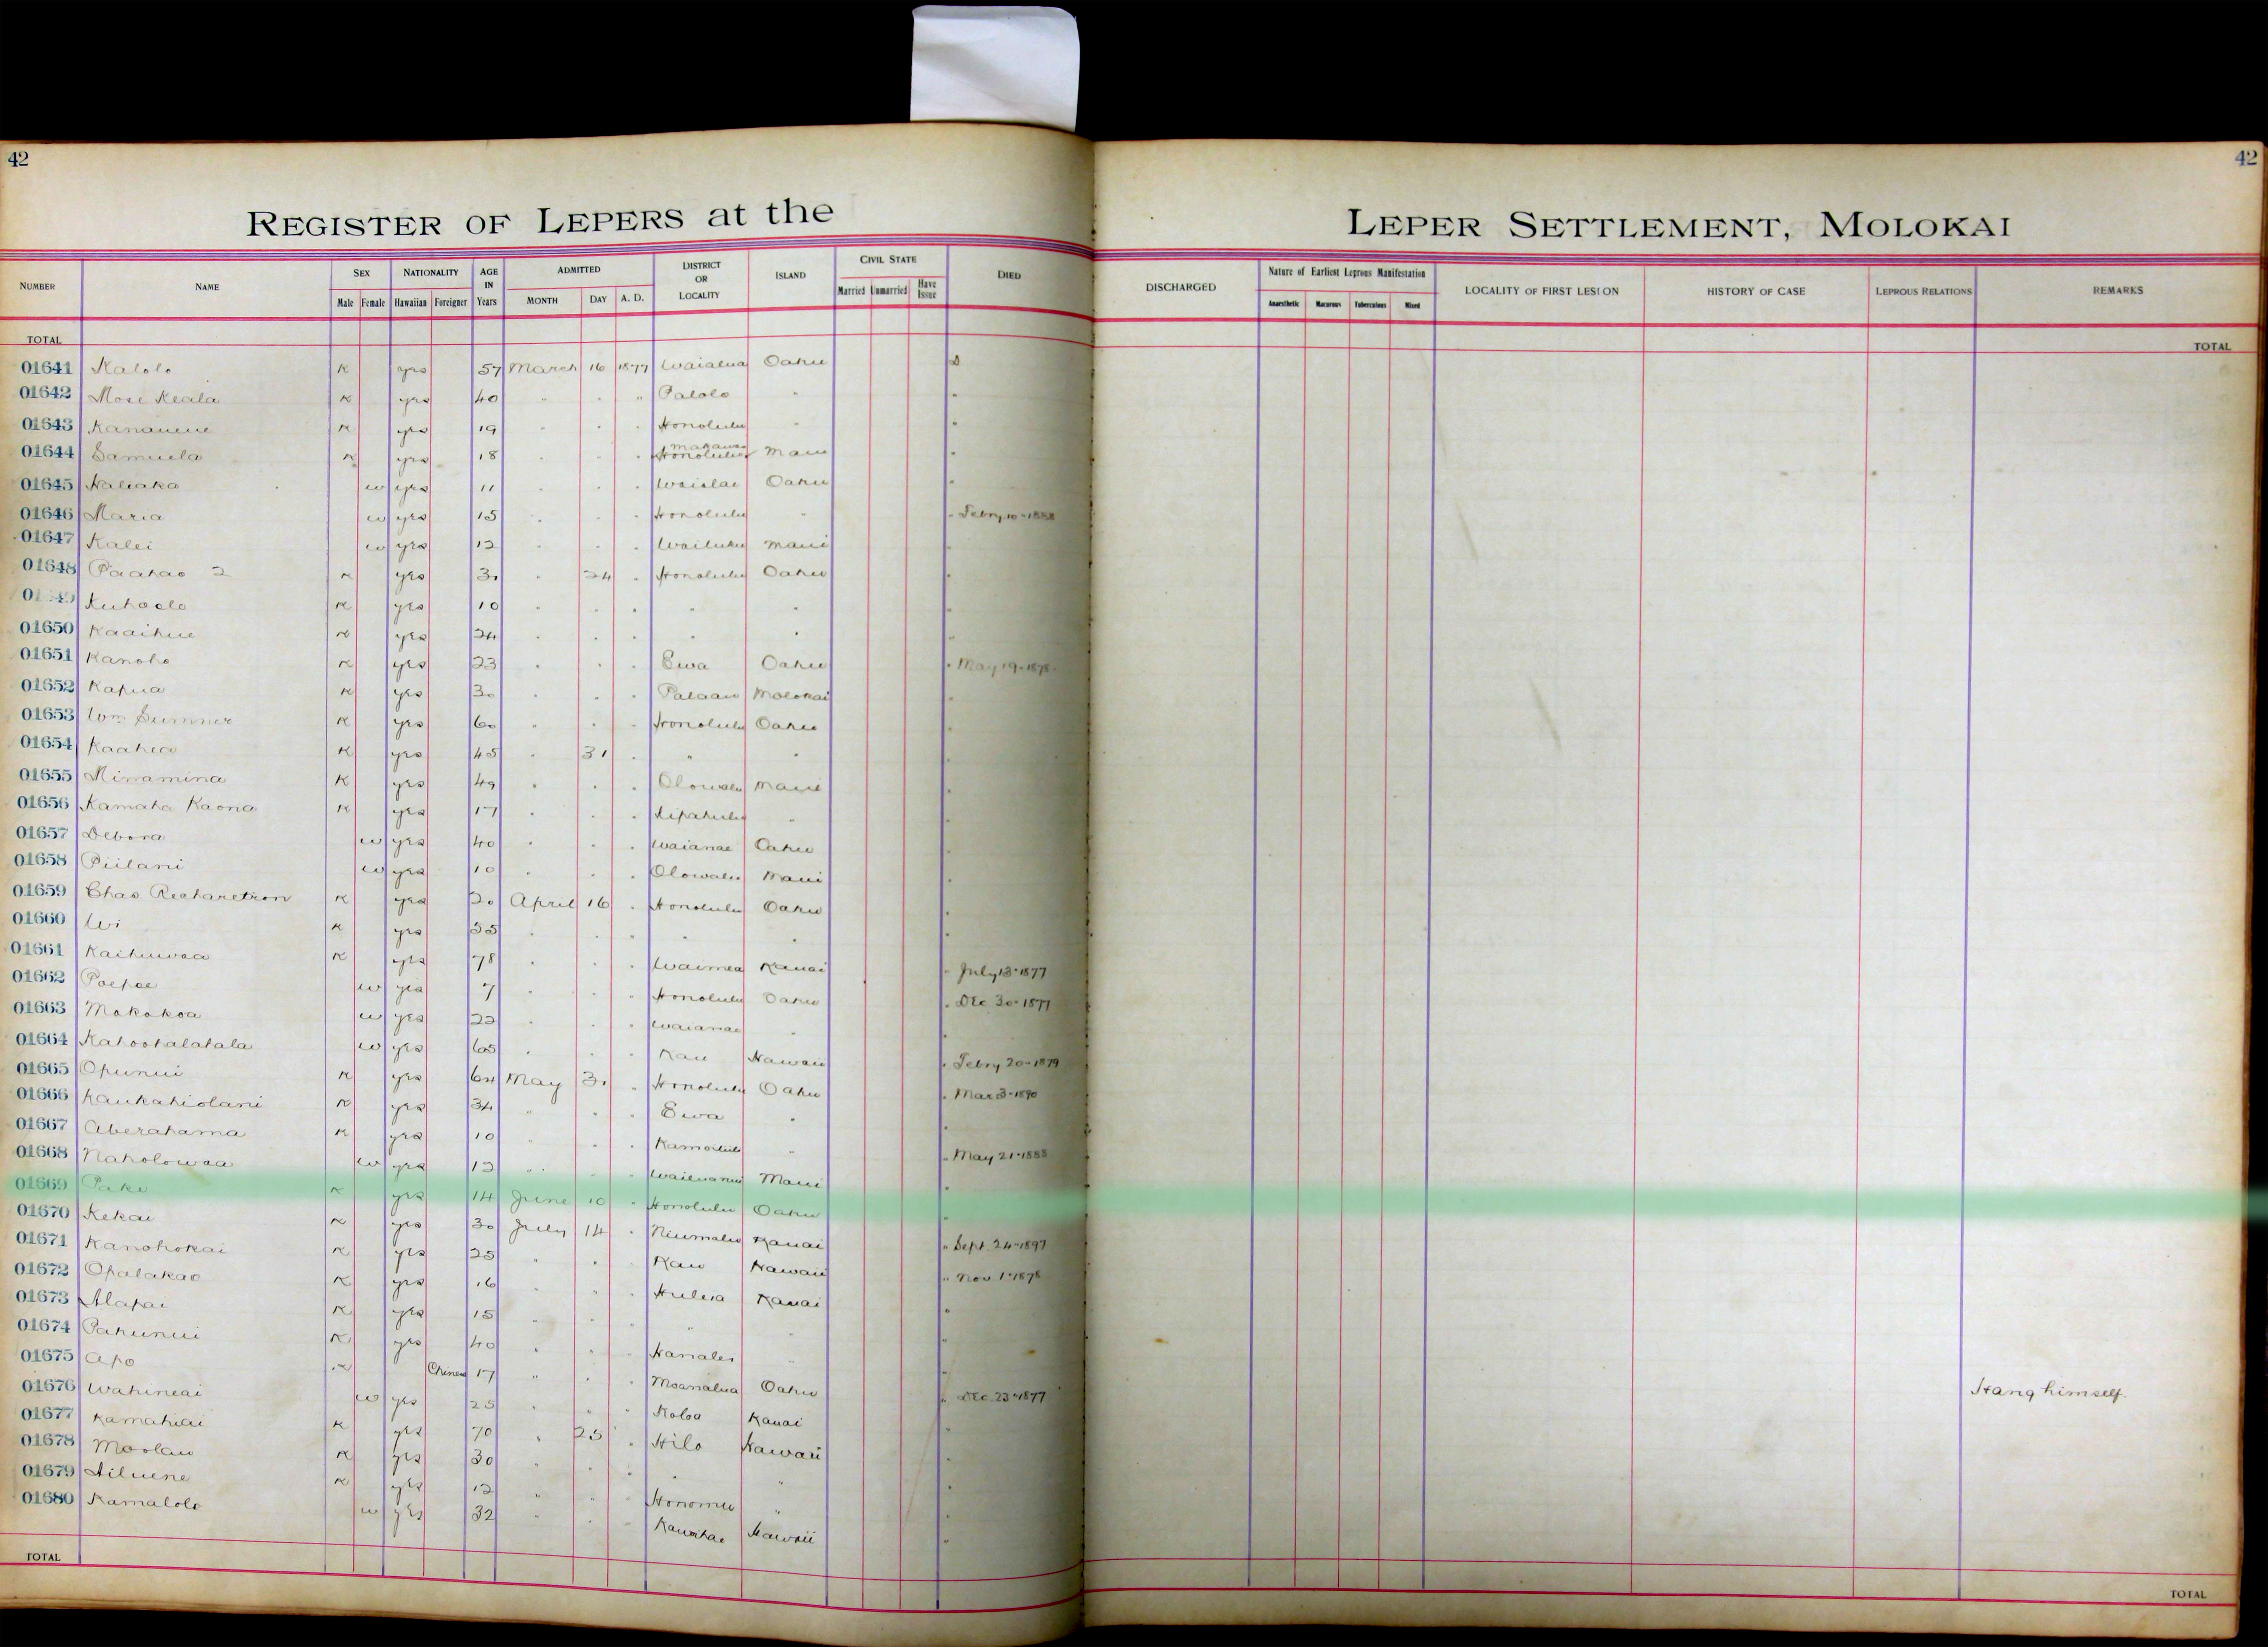 42
42
REGISTER OF LEPERS at the LEPER SETTLEMENT, MOLOKAI
NUMBER NAME SEX NATIONALITY AGE IN Years ADMITTED DISTRICT OR LOCALITY ISLAND CIVIL STATE DIED DISCHARGED Nature of Earliest Leprous Manifestation LOCALITY OF FIRST LESION HISTORY OF CASE LEPROUS RELATIONS REMARKS
Male Female Hawaiian Foreigner MONTH DAY A. D. Married Unmarried Have Issue Anaesthetic Macurous Tuberculous Mixed
TOTAL TOTAL
01641 Kalolo K yes 57 March 16 1877 Waialua Oahu D
01642 Mose Keala K yes 40 " " " Palolo " "
01643 Kananeue K yes 19 " " " Honolulu " "
01644 Samuela K yes 18 " " " Honolulu Makawao Maui "
01645 Naliaka w yes 11 " " " Waialae Oahu "
01646 Maria w yes 15 " " " Honolulu " " Febry 10-1888
01647 Kalei w yes 12 " " " Wailuku Maui "
01648 Paahao 2 K yes 30 " 24 " Honolulu Oahu "
Kuhaelo K yes 10 " " " " " "
01650 Kaaihue K yes 24 " " " " " "
01651 Kanoho K yes 23 " " " Ewa Oahu " May 19-1878
01652 Kapua K yes 30 " " " Palaau Molokai "
01653 Wm Sumner K yes 60 " " " Honolulu Oahu "
01654 Kaahea K yes 45 " 31 " " " "
01655 Minamina K yes 49 " " " Olowalu Maui "
01656 Kamaha Kaona K yes 17 " " " Kipahulu " "
01657 Debora w yes 40 " " " Waianae Oahu "
01658 Piilani w yes 10 " " " Olowalu Maui "
01659 Chas Richaretson K yes 20 April 16 " Honolulu Oahu "
01660 Wi K yes 35 " " " " " "
01661 Kaihuwaa K yes 78 " " " Waimea Kauai " July 13-1877
01662 Poepoe w yes 7 " " " Honolulu Oahu " Dec 30-1877
01663 Makakoa w yes 22 " " " Waianae " "
01664 Kahoohalahala w yes 65 " " " Kau Hawaii " Febry 20-1879
01665 Opunui K yes 64 May 31 " Honolulu Oahu " Mar 3-1890
01666 Kaukahiolani K yes 34 " " " Ewa " "
01667 Aberahama K yes 10 " " " Kamoiliili " " May 21-1888
01668 Naholowaa w yes 12 " " " Wailuanui Maui "
01669 Pake K yes 14 June 10 " Honolulu Oahu "
01670 Kekai K yes 30 July 14 " Niumalu Kauai " Sept. 24-1897
01671 Kanohokai K yes 25 " " " Kau Hawaii " Nov 1-1878
01672 Opalakao K yes 16 " " " Huleia Kauai "
01673 Alapai K yes 15 " " " " " "
01674 Pahunui K yes 40 " " " Hanalei " "
01675 Apo K Chinese 17 " " " Moanalua Oahu " Dec 23-1877 Hang himself.
01676 Wahineai w yes 25 " " " Koloa Kauai "
01677 Kamahiai K yes 70 " 25 " Hilo Hawaii "
01678 Moolau K yes 30 " " " " " "
01679 Hiluene K yes 12 " " " Honomu " "
01680 Kamalolo w yes 32 " " " Kawaihae Hawaii "
TOTAL TOTAL